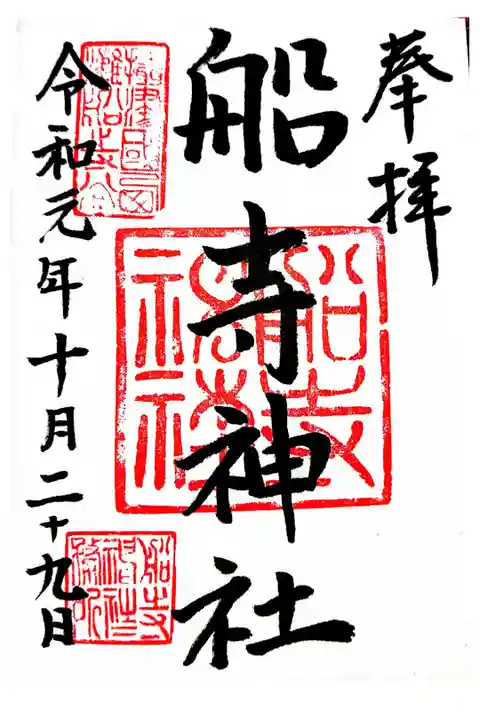 奉拝
船寺神社
令和元年十月二十九日
船寺神社
船寺神社務所